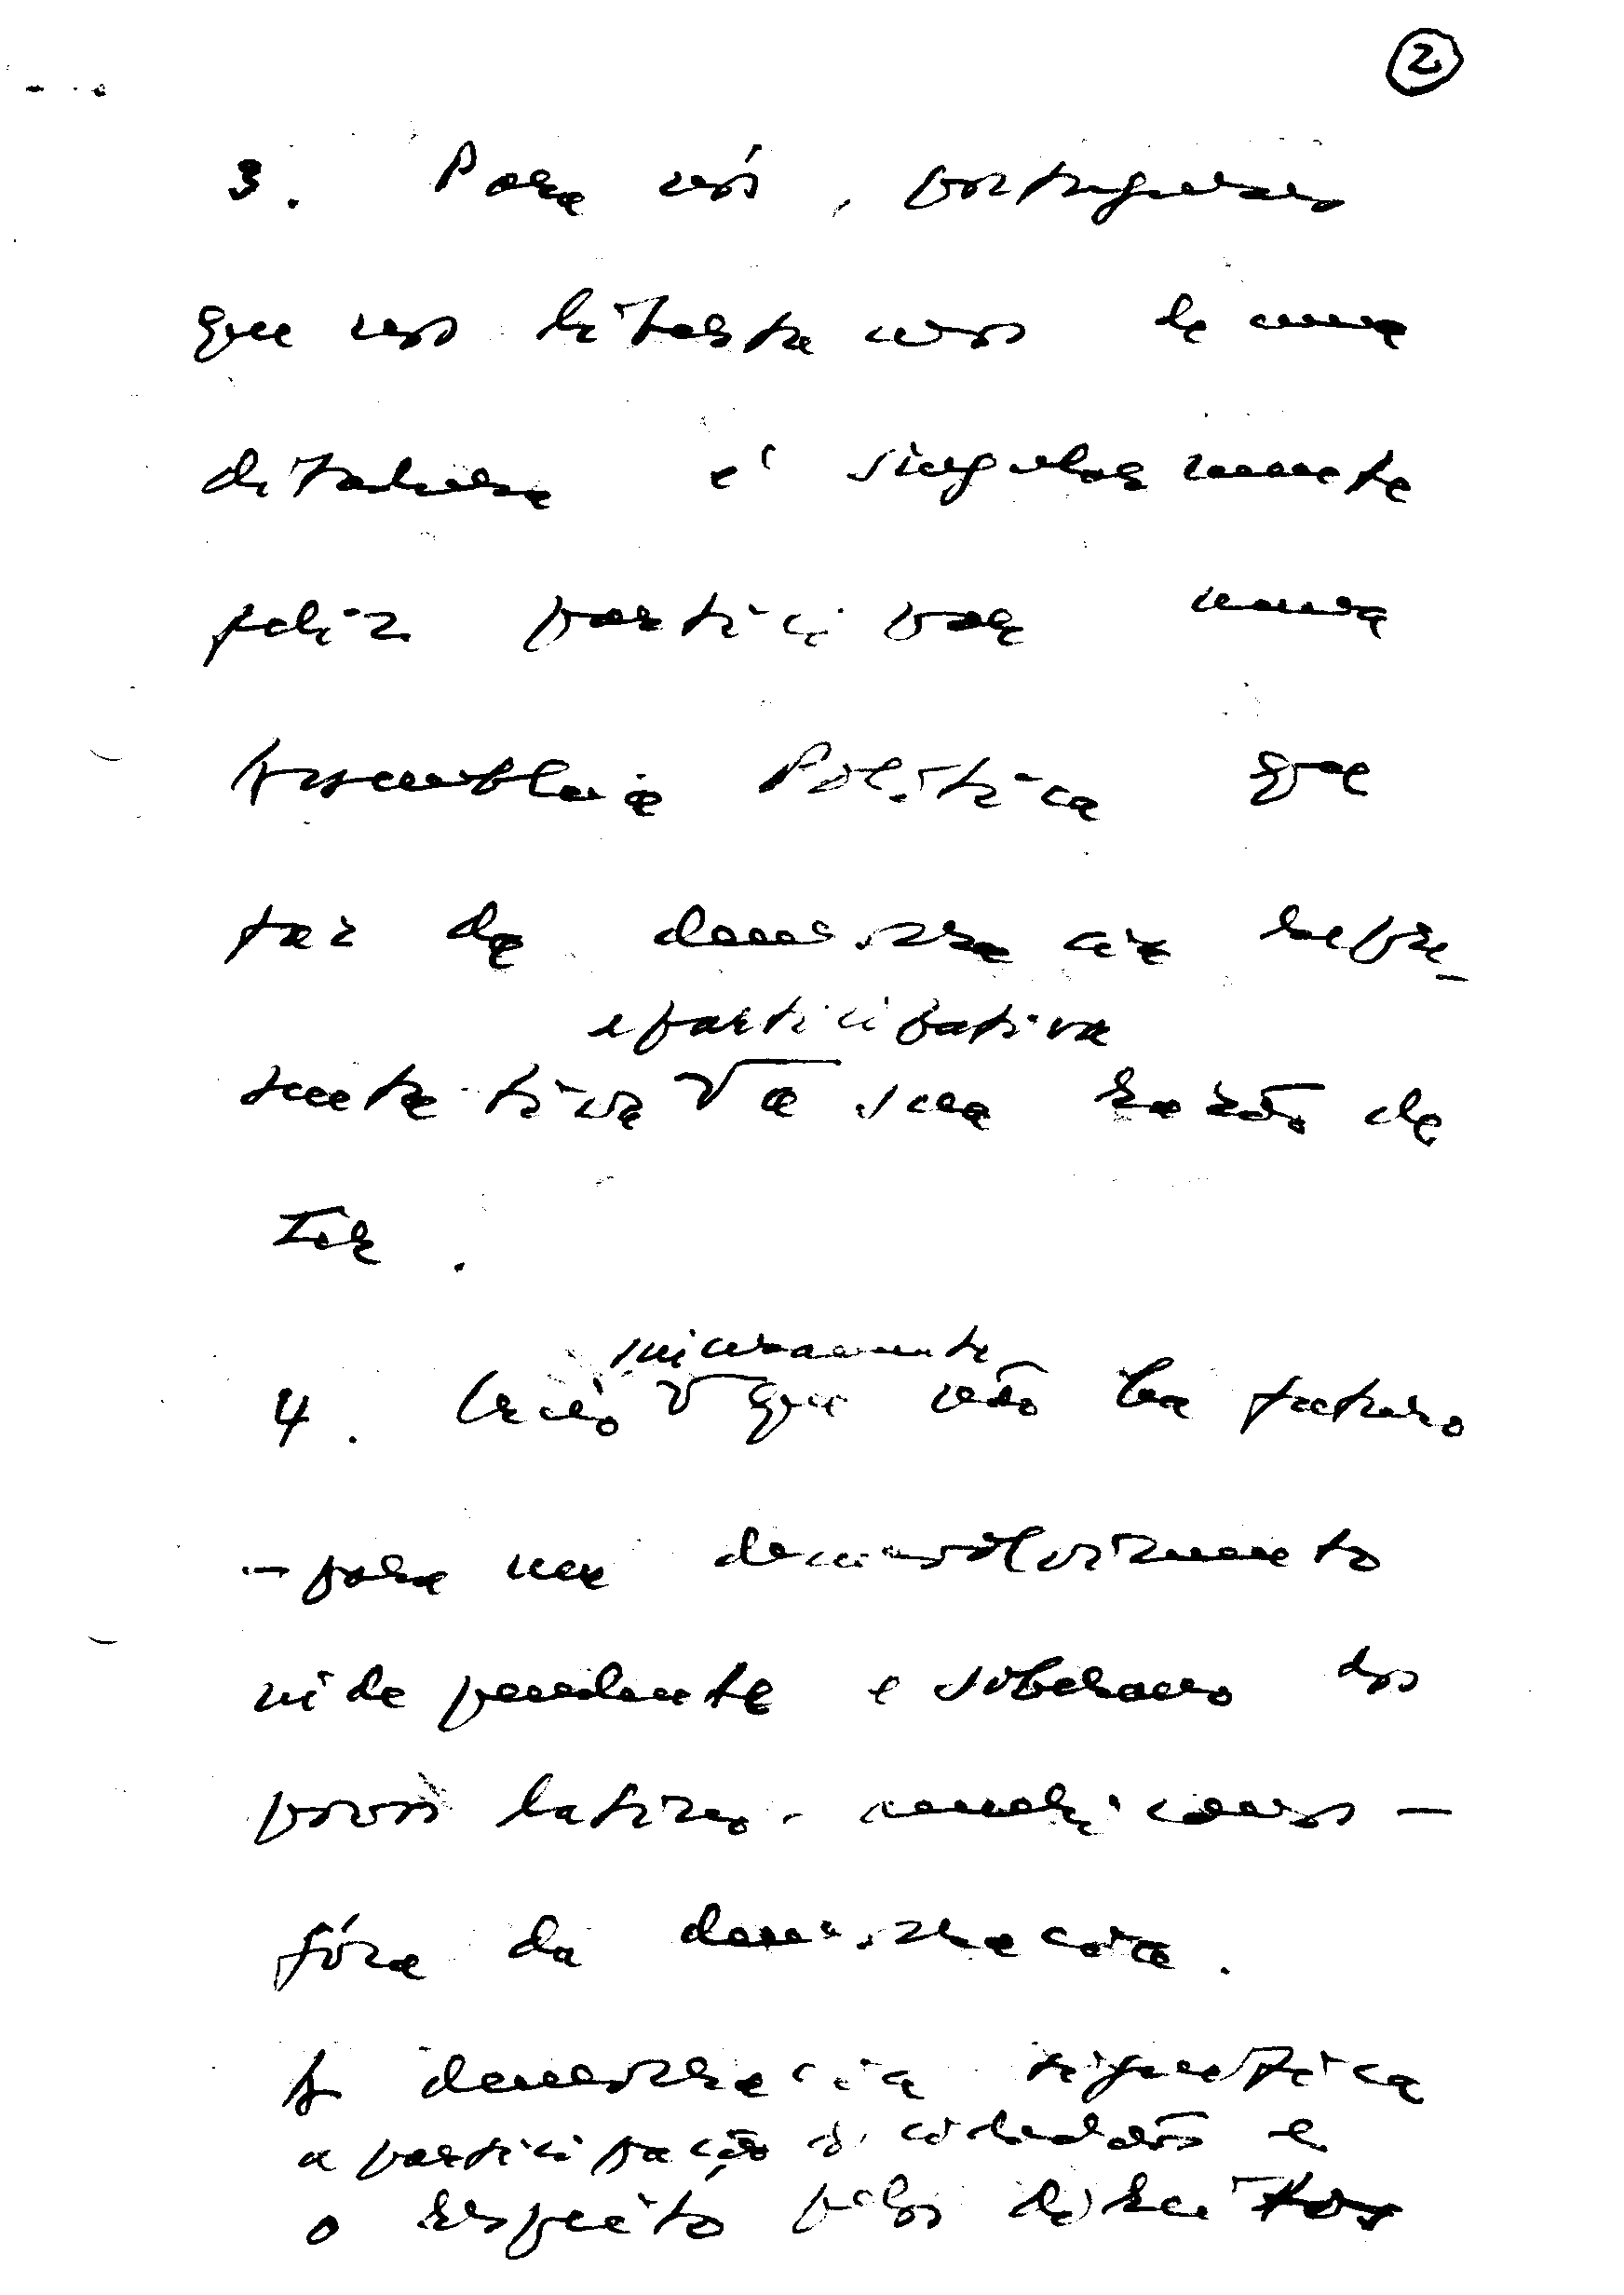 2
3. Para nós, portugueses
que nos libertamos de uma
ditadura é singularmente
feliz participar numa
Assembleia Política que
faz da democracia repre-
e participativa
sentativa a sua razão de
ser.
sinceramente
4. Creio que não há futuro
- para um desenvolvimento
independente e soberano dos
povos latino-americanos -
fóra da democracia.
A democracia significa
a participação do cidadão e
o respeito pelos direitos